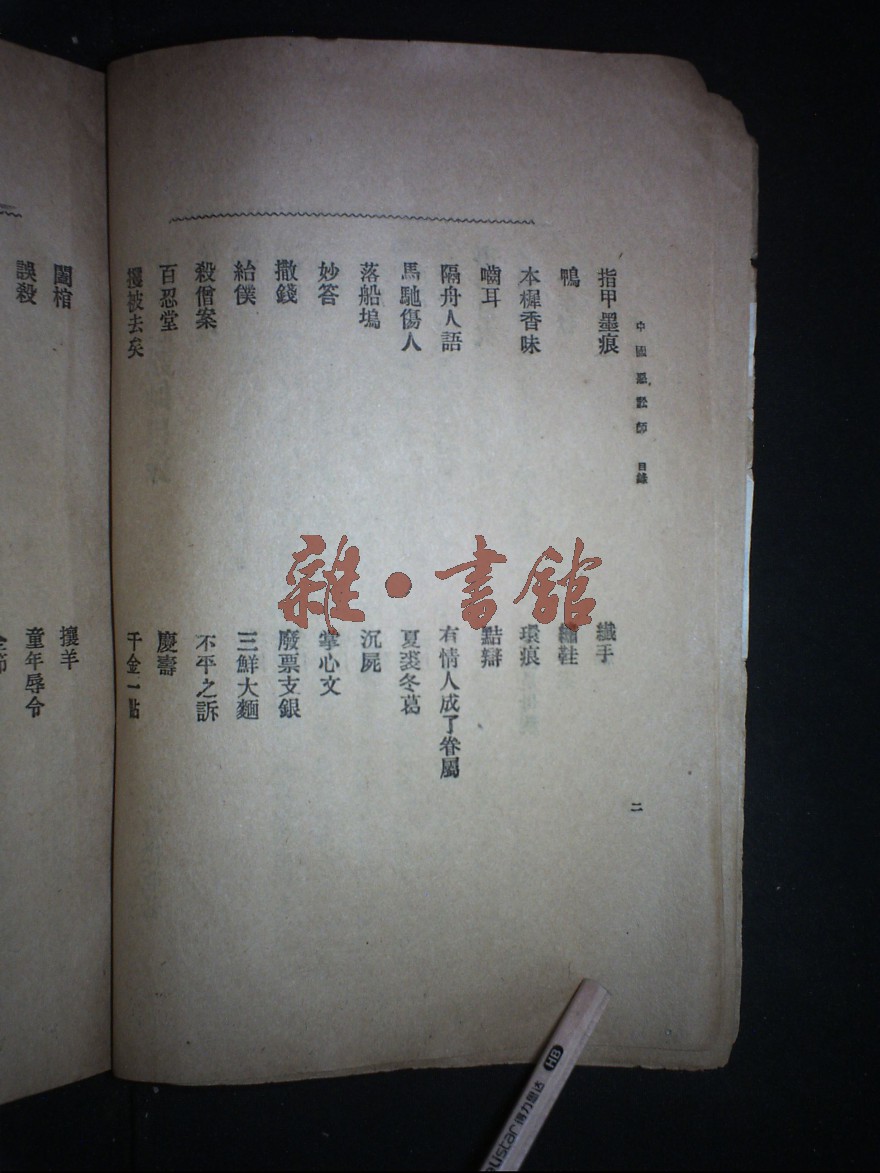 中國惡訟師 目錄
二
指甲墨痕
纖手
鴨
繡鞋
木樨香味
環痕
嚙耳
黠辯
隔舟人語
有情人成了眷屬
馬馳傷人
夏裘冬葛
落船塢
沉屍
妙答
掌心文
撒錢
廢票支銀
給僕
三鮮大麵
殺僧案
不平之訴
百忍堂
慶壽
攫被去矣
千金一點
闔棺
攘羊
誤殺
童年辱令
雜·書館
HB